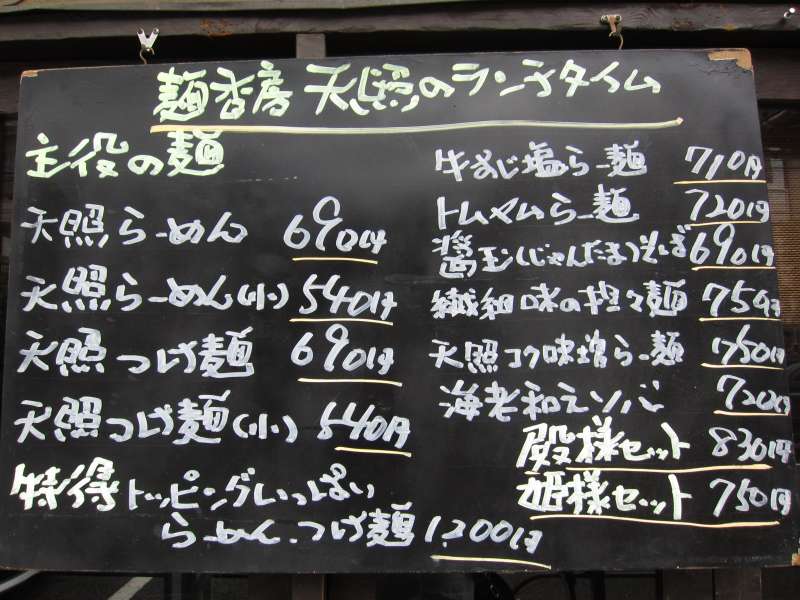 麺香房 天照のランチタイム
主役の麺
天照らーめん 690円
天照らーめん(小) 540円
天照つけ麺 690円
天照つけ麺(小) 540円
特得トッピングいっぱい
らーめん.つけ麺 1,200円
牛すじ塩らー麺 710円
トムヤムらー麺 720円
醤玉(じゃんたま)そば 690円
繊細味の担々麺
天照コク味噌らー麺 750円
海老和えソバ 720円
殿様セット 830円
姫様セット 750円